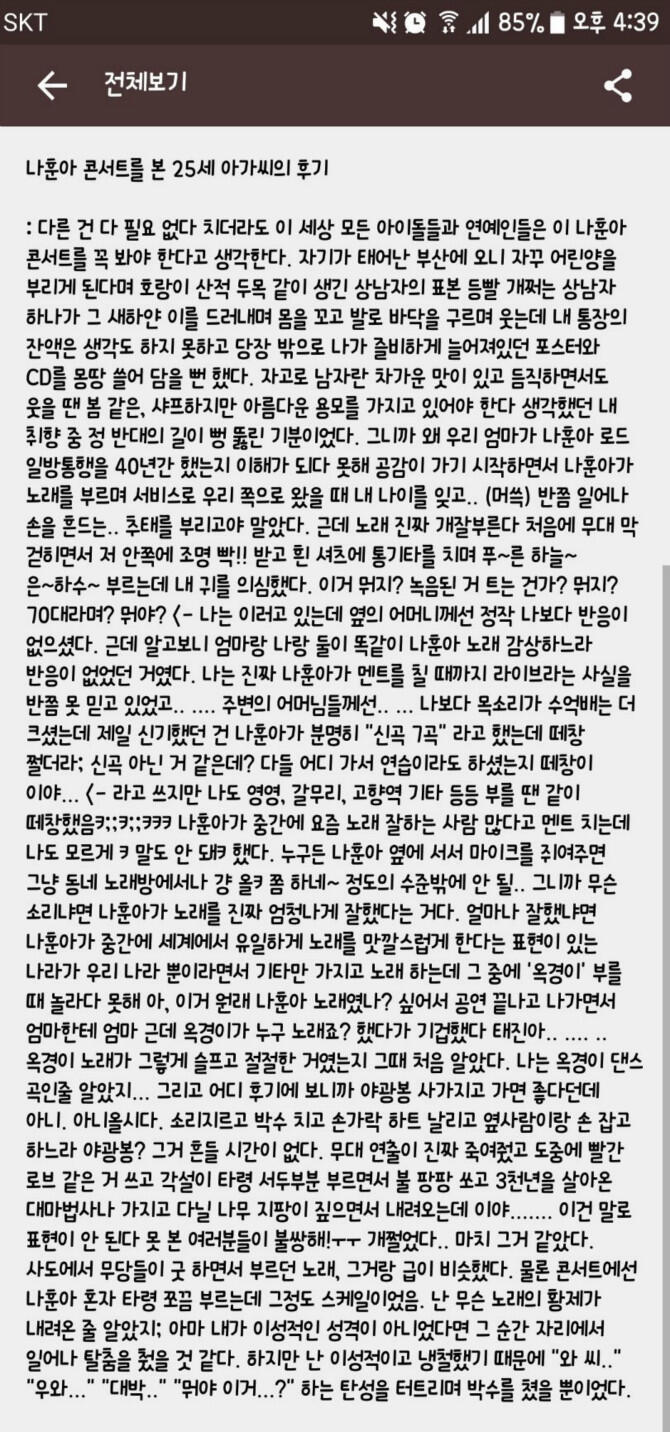 SKT 85% 오후 4:39
전체보기
나훈아 콘서트를 본 25세 아가씨의 후기
: 다른 건 다 필요 없다 치더라도 이 세상 모든 아이돌들과 연예인들은 이 나훈아
콘서트를 꼭 봐야 한다고 생각한다. 자기가 태어난 부산에 오니 자꾸 어린양을
부리게 된다며 호랑이 산적 두목 같이 생긴 상남자의 표본 등빨 개쩌는 상남자
하나가 그 새하얀 이를 드러내며 몸을 꼬고 발로 바닥을 구르며 웃는데 내 통장의
잔액은 생각도 하지 못하고 당장 밖으로 나가 즐비하게 늘어져있던 포스터와
CD를 몽땅 쓸어 담을 뻔 했다. 자고로 남자란 차가운 맛이 있고 듬직하면서도
웃을 땐 봄 같은, 샤프하지만 아름다운 용모를 가지고 있어야 한다 생각했던 내
취향 중 정 반대의 길이 뻥 뚫린 기분이었다. 그니까 왜 우리 엄마가 나훈아 로드
일방통행을 40년간 했는지 이해가 되다 못해 공감이 가기 시작하면서 나훈아가
노래를 부르며 서비스로 우리 쪽으로 왔을 때 내 나이를 잊고.. (머쓱) 반쯤 일어나
손을 흔드는.. 추태를 부리고야 말았다. 근데 노래 진짜 개잘부른다 처음에 무대 막
걷히면서 저 안쪽에 조명 빡!! 받고 흰 셔츠에 통기타를 치며 푸~른 하늘~
은~하수~ 부르는데 내 귀를 의심했다. 이거 뭐지? 녹음된 거 트는 건가? 뭐지?
70대라며? 뭐야? <- 나는 이러고 있는데 옆의 어머니께선 정작 나보다 반응이
없으셨다. 근데 알고보니 엄마랑 나랑 둘이 똑같이 나훈아 노래 감상하느라
반응이 없었던 거였다. 나는 진짜 나훈아가 멘트를 칠 때까지 라이브라는 사실을
반쯤 못 믿고 있었고.. .... 주변의 어머님들께선.. ... 나보다 목소리가 수억배는 더
크셨는데 제일 신기했던 건 나훈아가 분명히 "신곡 7곡" 라고 했는데 떼창
쩔더라; 신곡 아닌 거 같은데? 다들 어디 가서 연습이라도 하셨는지 떼창이
이야... <- 라고 쓰지만 나도 영영, 갈무리, 고향역 기타 등등 부를 땐 같이
떼창했음ㅋ;;ㅋ;;ㅋㅋㅋ 나훈아가 중간에 요즘 노래 잘하는 사람 많다고 멘트 치는데
나도 모르게 ㅋ 말도 안 돼ㅋ 했다. 누구든 나훈아 옆에 서서 마이크를 쥐여주면
그냥 동네 노래방에서나 걍 올ㅋ 쫌 하네~ 정도의 수준밖에 안 될.. 그니까 무슨
소리냐면 나훈아가 노래를 진짜 엄청나게 잘했다는 거다. 얼마나 잘했냐면
나훈아가 중간에 세계에서 유일하게 노래를 맛깔스럽게 한다는 표현이 있는
나라가 우리 나라 뿐이라면서 기타만 가지고 노래 하는데 그 중에 '옥경이' 부를
때 놀라다 못해 아, 이거 원래 나훈아 노래였나? 싶어서 공연 끝나고 나가면서
엄마한테 엄마 근데 옥경이가 누구 노래죠? 했다가 기겁했다 태진아.. .... ..
옥경이 노래가 그렇게 슬프고 절절한 거였는지 그때 처음 알았다. 나는 옥경이 댄스
곡인줄 알았지... 그리고 어디 후기에 보니까 야광봉 사가지고 가면 좋다던데
아니. 아니올시다. 소리지르고 박수 치고 손가락 하트 날리고 옆사람이랑 손 잡고
하느라 야광봉? 그거 흔들 시간이 없다. 무대 연출이 진짜 죽여줬고 도중에 빨간
로브 같은 거 쓰고 각설이 타령 서두부분 부르면서 불 팡팡 쏘고 3천년을 살아온
대마법사나 가지고 다닐 나무 지팡이 짚으면서 내려오는데 이야....... 이건 말로
표현이 안 된다 못 본 여러분들이 불쌍해!ㅜㅜ 개쩔었다.. 마치 그거 같았다.
사도에서 무당들이 굿 하면서 부르던 노래, 그거랑 급이 비슷했다. 물론 콘서트에선
나훈아 혼자 타령 쪼끔 부르는데 그정도 스케일이었음. 난 무슨 노래의 황제가
내려온 줄 알았지; 아마 내가 이성적인 성격이 아니었다면 그 순간 자리에서
일어나 탈춤을 췄을 것 같다. 하지만 난 이성적이고 냉철했기 때문에 "와 씨.."
"우와..." "대박.." "뭐야 이거...?" 하는 탄성을 터트리며 박수를 쳤을 뿐이었다.